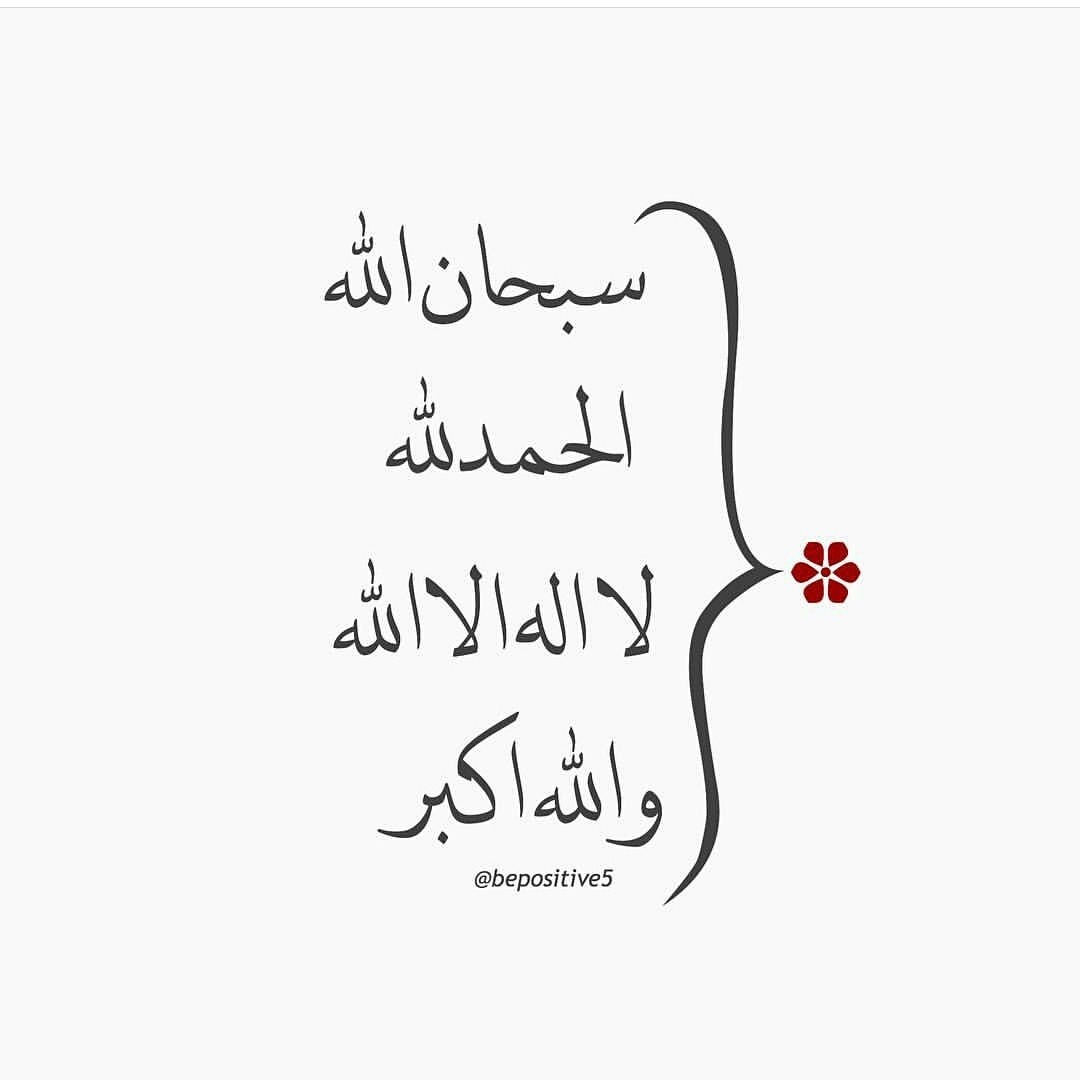 سبحان الله
الحمدلله
لا اله الا الله
والله اكبر
@bepositive5